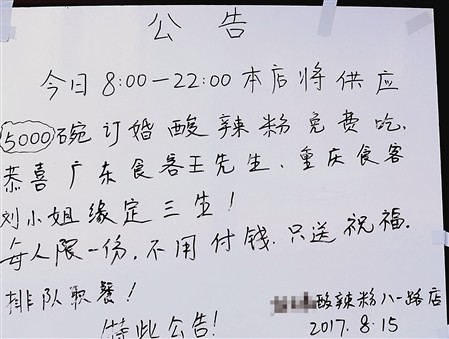 公告
今日8:00—22:00本店将供应
5000碗订婚酸辣粉免费吃.
恭喜广东食客王先生、重庆食客
刘小姐缘定三生!
每人限一份,不用付钱.只送祝福.
排队取餐!
特此公告!
酸辣粉八一路店
2017.8.15